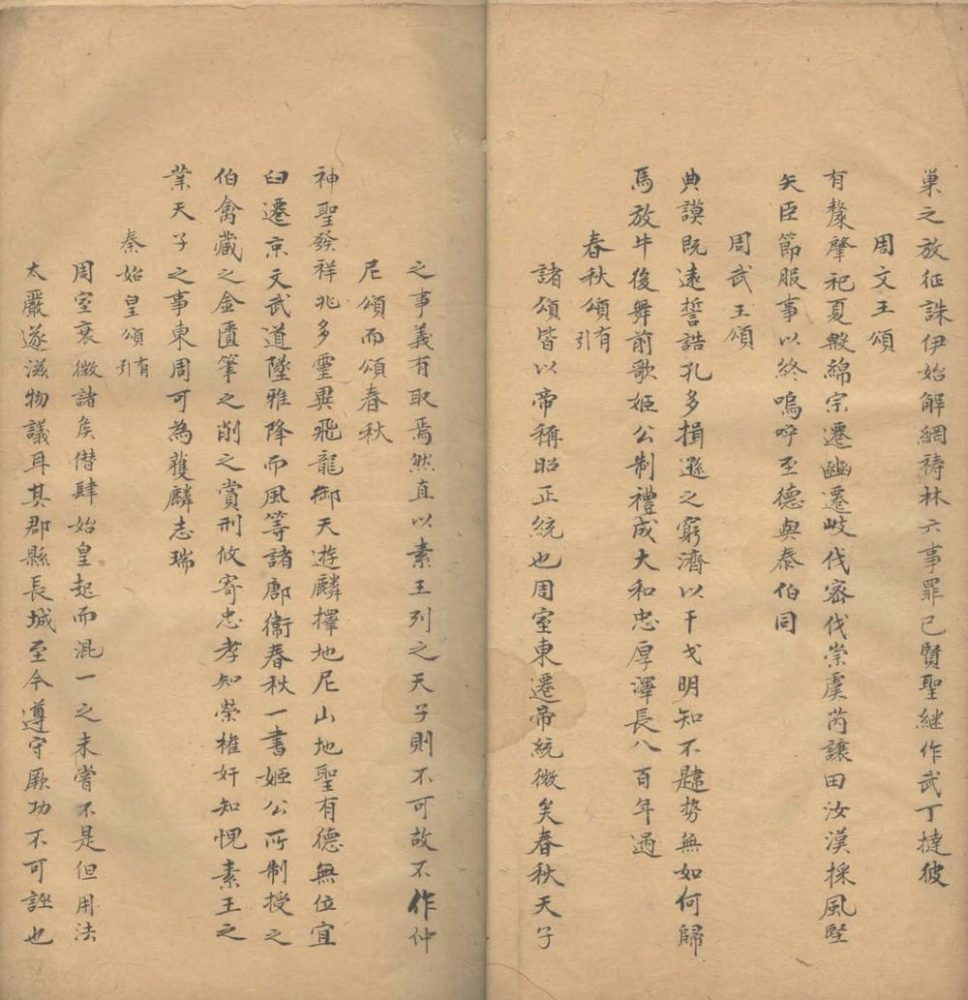 巢之放征誅伊始解網禱林六事罪已賢聖継作武丁撻彼
周文王頌
有斄肇祀夏殷綿宗遷豳遷岐伐密伐崇虞芮讓田汝漢採風堅
矢臣節服事以終嗚呼至德與泰伯同
周武王頌
典謨既遠誓誥孔多揖遜之窮濟以干戈明知不韙势無如何歸
馬放牛後舞前歌姬公制禮成大和忠厚澤長八百年過
春秋頌有引
諸頌皆以帝稱昭正統也周室東遷帝統微矣春秋天子
之事義有取焉然直以素王列之天子則不可故不作仲
尼頌而頌春秋
神聖發祥兆多靈異飛龍御天遊麟擇地尼山地聖有德無位宜
臼遷京文武道墜雅降而風等諸鄘衛春秋一書姬公所制授之
伯禽藏之金匱筆之削之賞刑攸寄忠孝知榮權奸知愧素王之
業天子之事東周可為獲麟志瑞
秦始皇頌有引
周室衰微諸矦僣肆始皇起而混一之未嘗不是但用法
太嚴遂滋物議耳其郡縣長城至今遵守厥功不可誣也